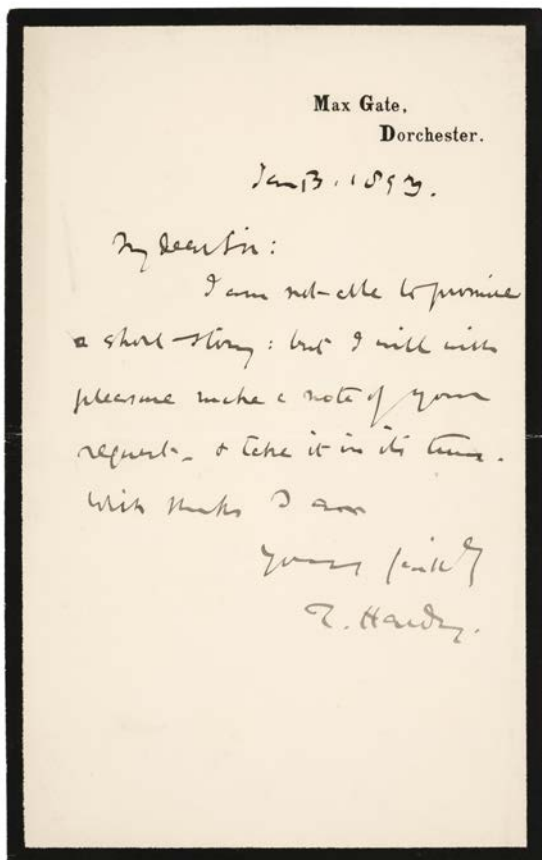 Max Gate,
Dorchester.
Jan 13. 1893.
My dear Sir:
I am not able to promise
a short story: but I will with
pleasure make a note of your
request - & take it in its turn.
With thanks I am
Yours faithfly
T. Hardy.